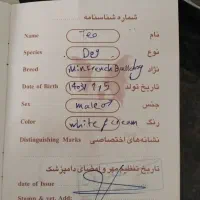 شماره شناسنامه
Name Teo نام
Species Dog نوع
Breed Mini French Bulldog نژاد
Date of Birth تاریخ تولد
Sex male ♂ جنس
Color white / cream رنگ
Distinguishing Marks نشانه‌های اختصاصی
تاریخ تنظیم مهر و امضای دامپزشک
date of Issue
Stamp & vet. Add: